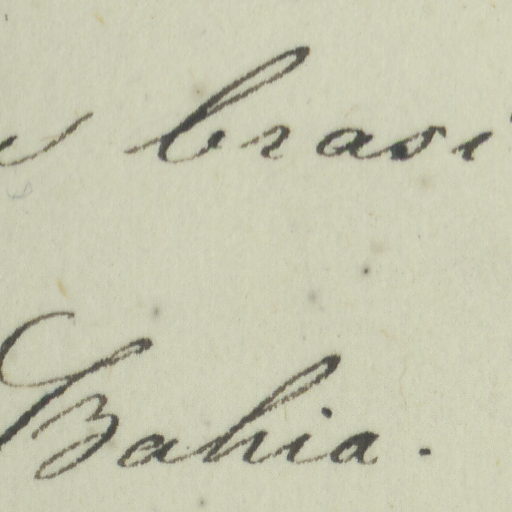 brasi
Bahia.